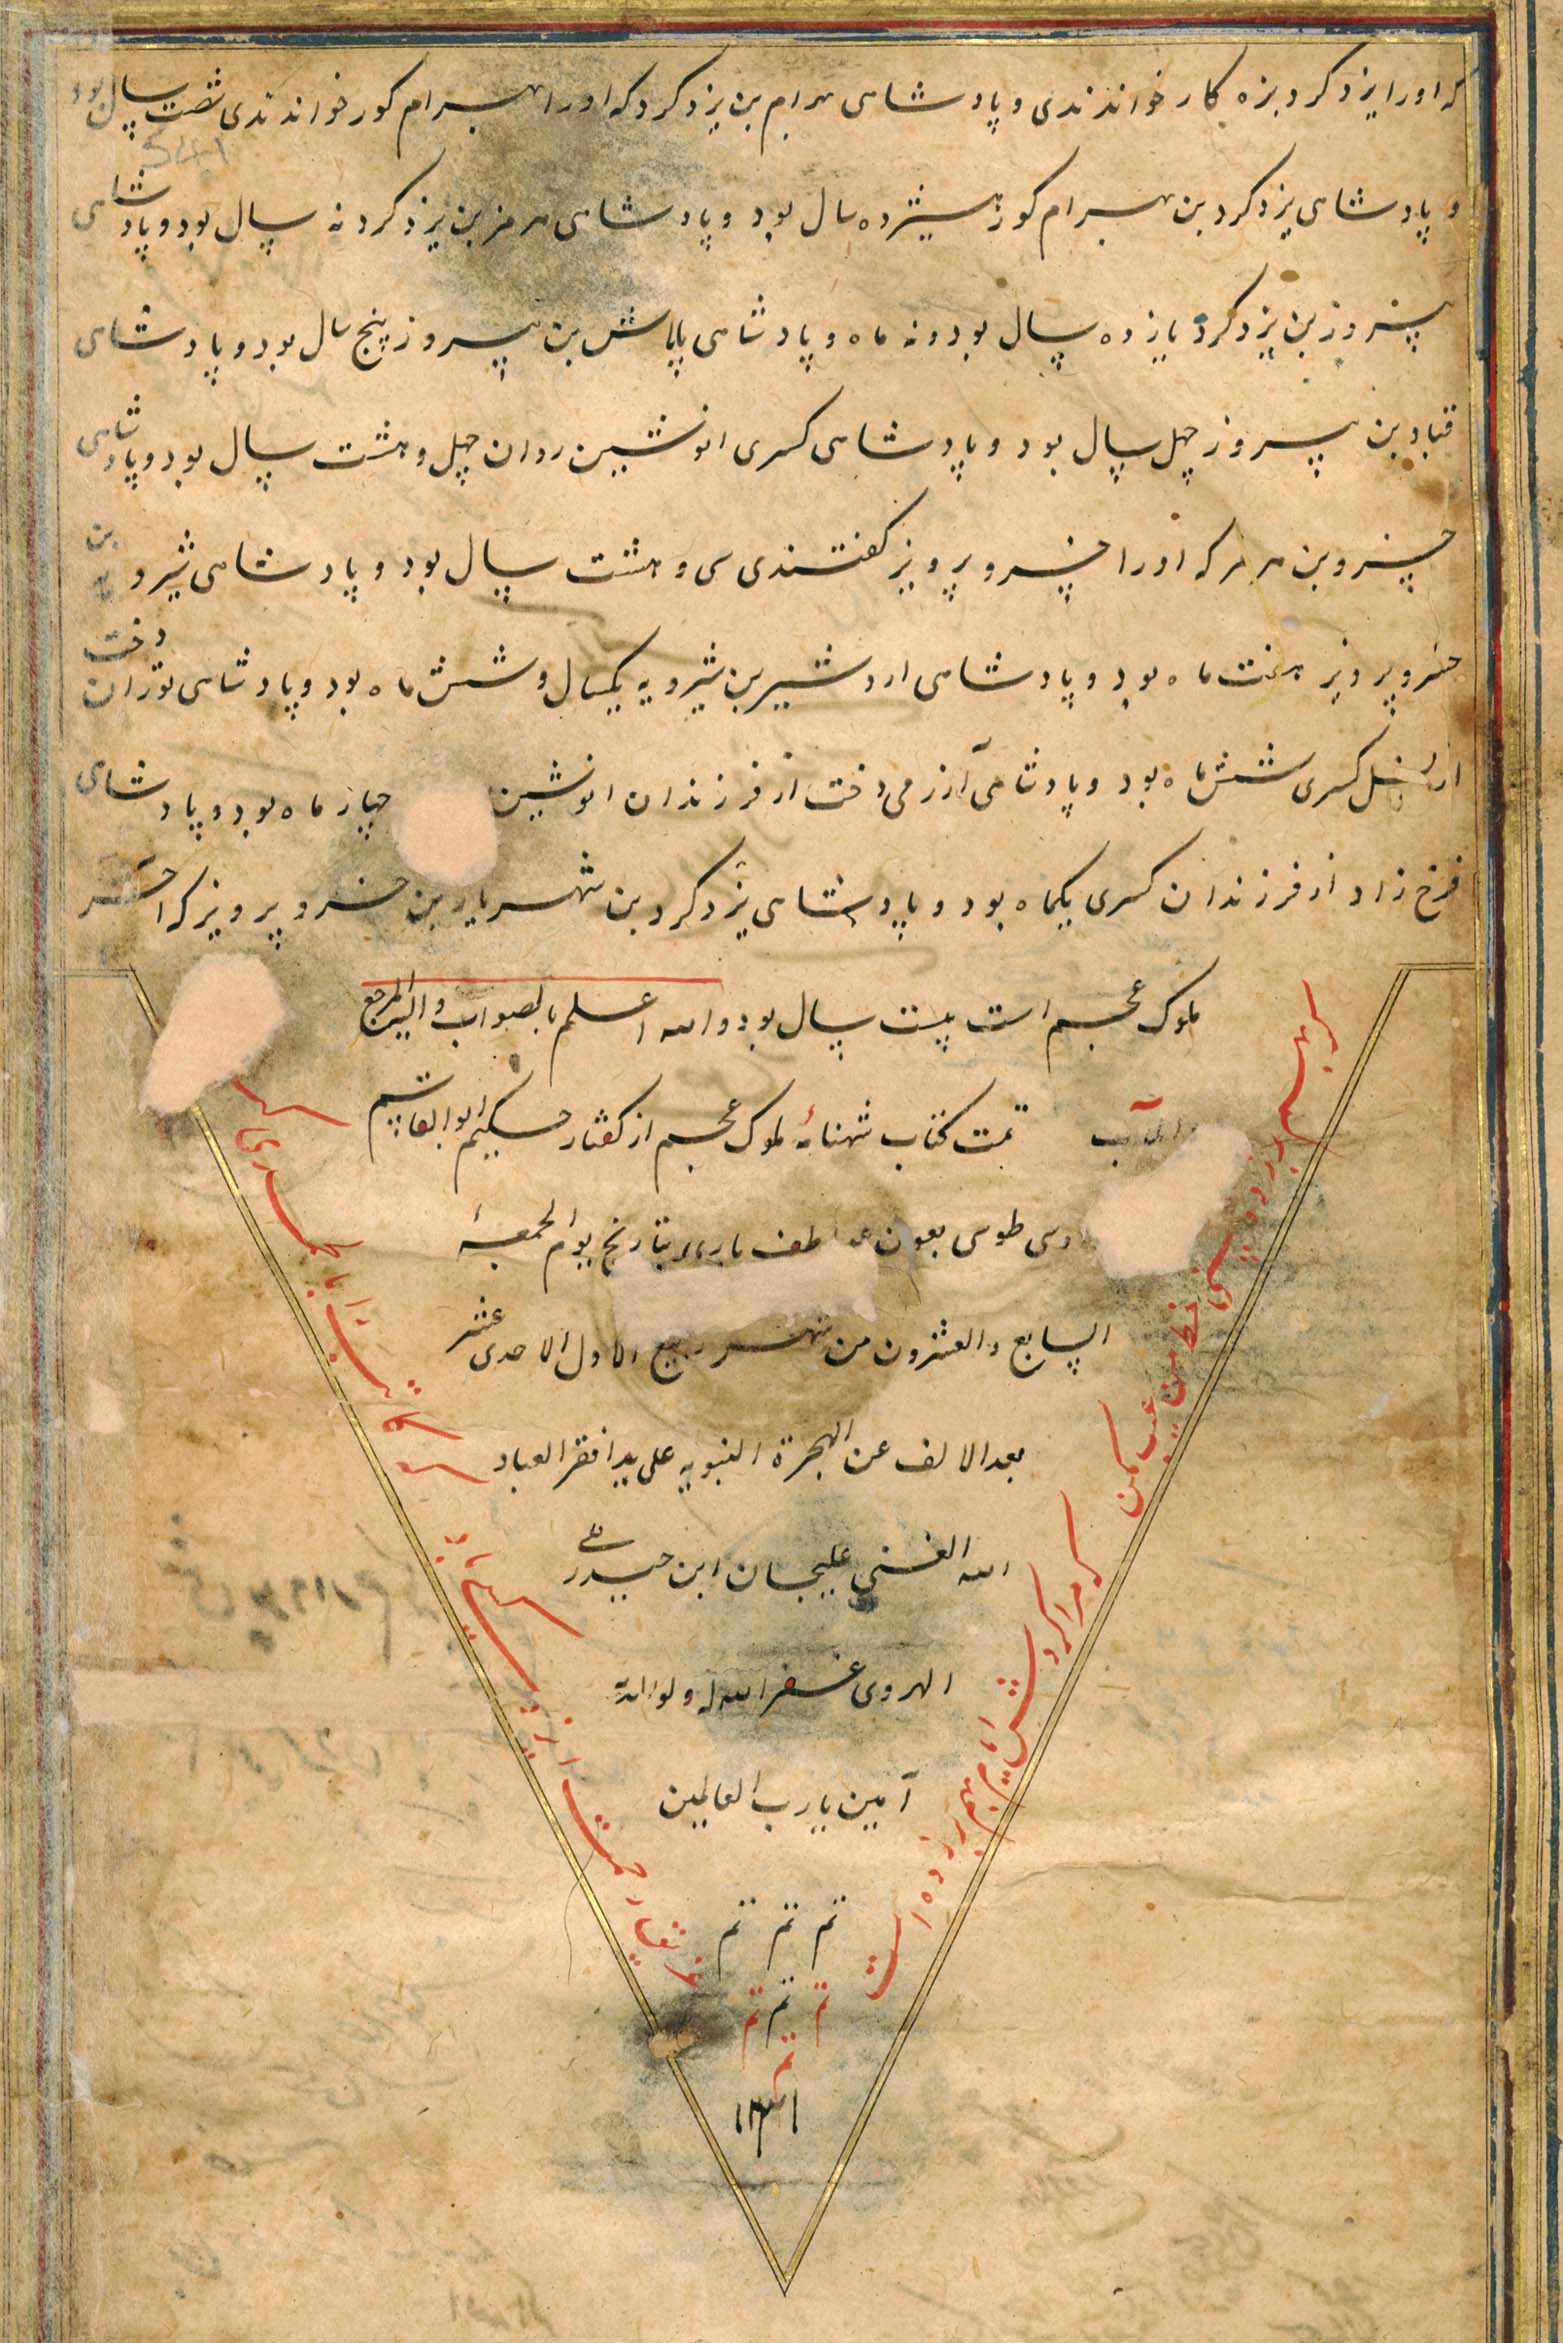 که او را یزدکرد بزه کار خواندندی و پادشاهی بهرام بن یزدکرد که او را بهرام کور خواندندی شصت سال بود
و پادشاهی یزدکرد بن بهرام کور هیژده سال بود و پادشاهی هرمز بن یزدکرد نه سال بود و پادشاهی
پیروز بن یزدکرد یازده سال بود و نه ماه و پادشاهی پلاش بن پیروز پنج سال بود و پادشاهی
قباد بن پیروز چهل سال بود و پادشاهی کسری انوشین روان چهل و هشت سال بود و پادشاهی
خسرو بن هرمز که او را خسرو پرویز کفتندی سی و هشت سال بود و پادشاهی شیرویه بن
خسرو پرویز هفت ماه بود و پادشاهی اردشیر بن شیرویه یکسال و شش ماه بود و پادشاهی توران دخت
از نسل کسری شش ماه بود و پادشاهی آزرمی دخت از فرزندان انوشین چهار ماه بود و پادشاهی
فرخ زاد از فرزندان کسری یکماه بود و پادشاهی یزدکرد بن شهریار بن خسرو پرویز که آخر
ملوک عجم است بیست سال بود والله اعلم بالصواب والیه المرجع
والمآب تمت کتاب شهنامهٔ ملوک عجم از کفتار حکیم ابوالقاسم
طوسی بعون بتاریخ یوم الجمعهٔ
السابع والعشرون من شهر ربیع الاول الاحدی عشر
بعد الالف عن الهجرة النبویه علی ید افقر العباد
الله الغنی علیجان ابن حیدر علی
الهروی غفر الله له و لوالدیه
آمین یا رب العالمین
گر بهم برزده بینی خط من عیب مکن
که مرا کردش ایام بهم برزده است
تم تم تم
تم تم تم
تم